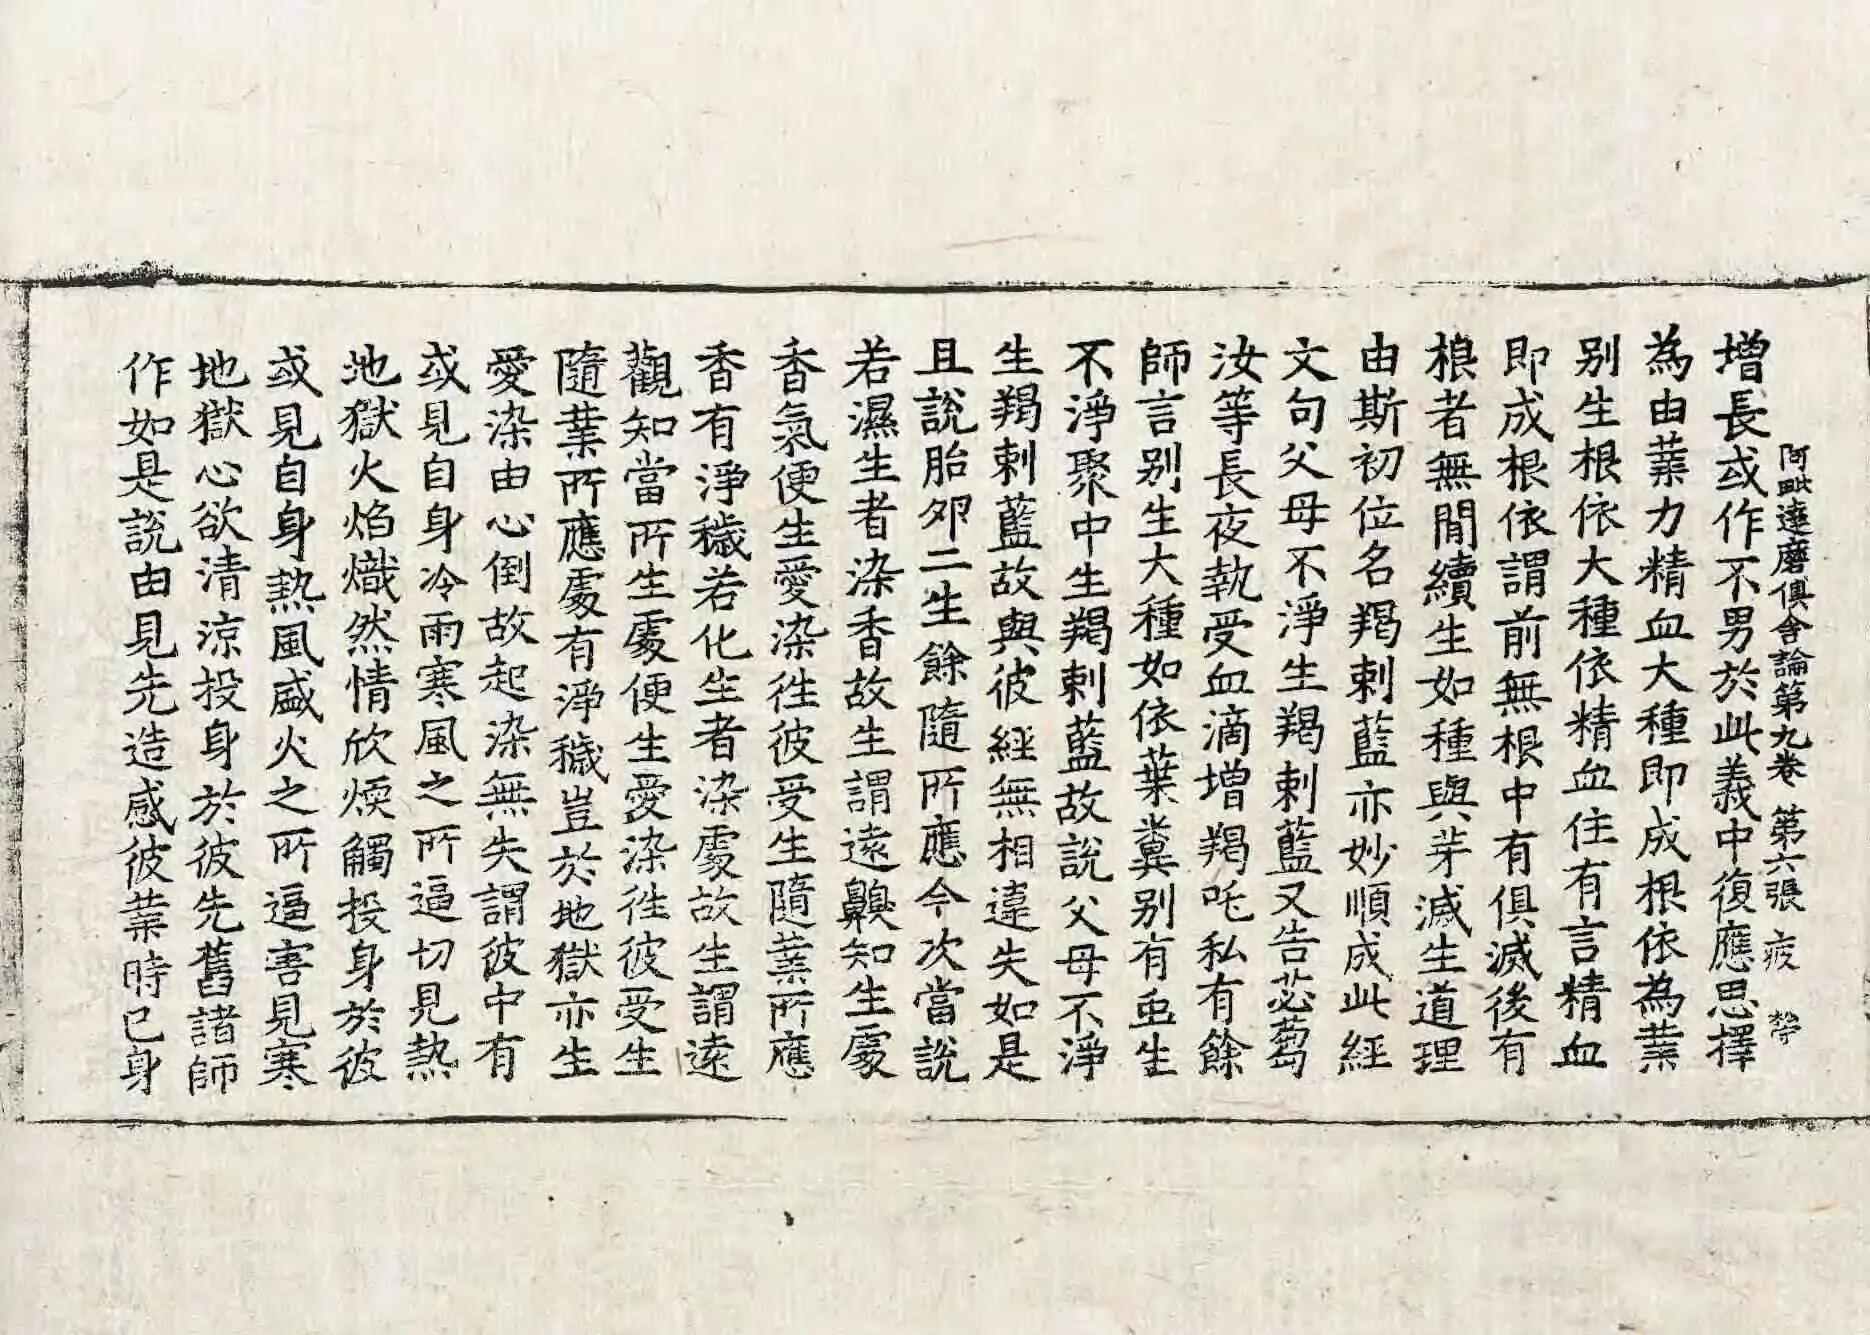 阿毗達磨俱舍論第九卷 第六張 疲
增長或作不男於此義中復應思擇
為由業力精血大種即成根依為業
別生根依大種依精血住有言精血
即成根依謂前無根中有俱滅後有
根者無間續生如種與芽滅生道理
由斯初位名羯剌藍亦妙順成此經
文句父母不淨生羯剌藍又告苾芻
汝等長夜執受血滴增羯吒私有餘
師言別生大種如依葉糞別有䖝生
不淨聚中生羯剌藍故說父母不淨
生羯剌藍故與彼經無相違失如是
且說胎卵二生餘隨所應今次當說
若濕生者染香故生謂遠齅知生處
香氣便生愛染往彼受生隨業所應
香有淨穢若化生者染處故生謂遠
觀知當所生處便生愛染往彼受生
隨業所應處有淨穢豈於地獄亦生
愛染由心倒故起染無失謂彼中有
或見自身冷雨寒風之所逼切見熱
地獄火焰熾然情欣煗觸投身於彼
或見自身熱風盛火之所逼害見寒
地獄心欲清涼投身於彼先舊諸師
作如是說由見先造感彼業時已身